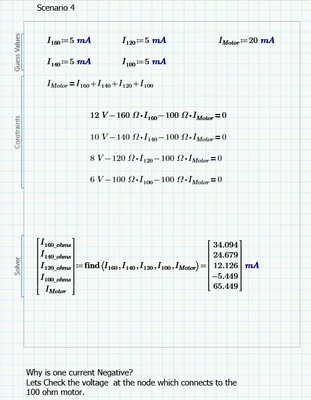 Scenario 4
Guess Values
I160:=5 mA I120:=5 mA IMotor:=20 mA
I140:=5 mA I100:=5 mA
Constraints
IMotor=I160+I140+I120+I100
12 V−160 Ω•I160−100 Ω•IMotor=0
10 V−140 Ω•I140−100 Ω•IMotor=0
8 V−120 Ω•I120−100 Ω•IMotor=0
6 V−100 Ω•I100−100 Ω•IMotor=0
Solver
I160_ohms
I140_ohms
I120_ohms
I100_ohms
IMotor
:=find(I160,I140,I120,I100,IMotor)=
34.094
24.679
12.126
−5.449
65.449
mA
Why is one current Negative?
Lets Check the voltage at the node which connects to the
100 ohm motor.